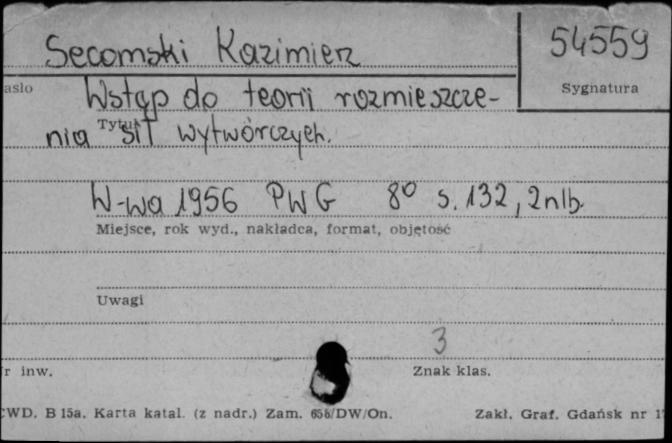 Secomski Kazimierz
54559
asło
Sygnatura
Wstęp do teorii rozmieszcze-
Tytuł
nia sił wytwórczych.
W-wa 1956 PWG 8° s. 132, 2nlb.
Miejsce, rok wyd., nakładca, format, objętość
Uwagi
3
r inw.
Znak klas.
CWD. B 15a. Karta katal. (z nadr.) Zam. 658/DW/On.
Zakł. Graf. Gdańsk nr 1